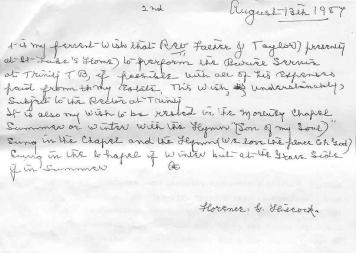 2nd August 13th 1987
it is my fervent wish that Rev Father J Taylor) presently
at St Luke's Home) to perform the Burial Service
at Trinity T B, if possible with all of his Expenses
paid from my Estate, This wish, understandably,
Subject to the Rector at Trinity
It is also my wish to be rested in the Mortuary Chapel
Summer or Winter with the Hymn "(Son of my Soul)"
Sung in the Chapel and the Hymn (We love the place Oh God)
Sung in the Chapel if Winter but at the Grave Side
if in Summer
Florence E. Hiscock.